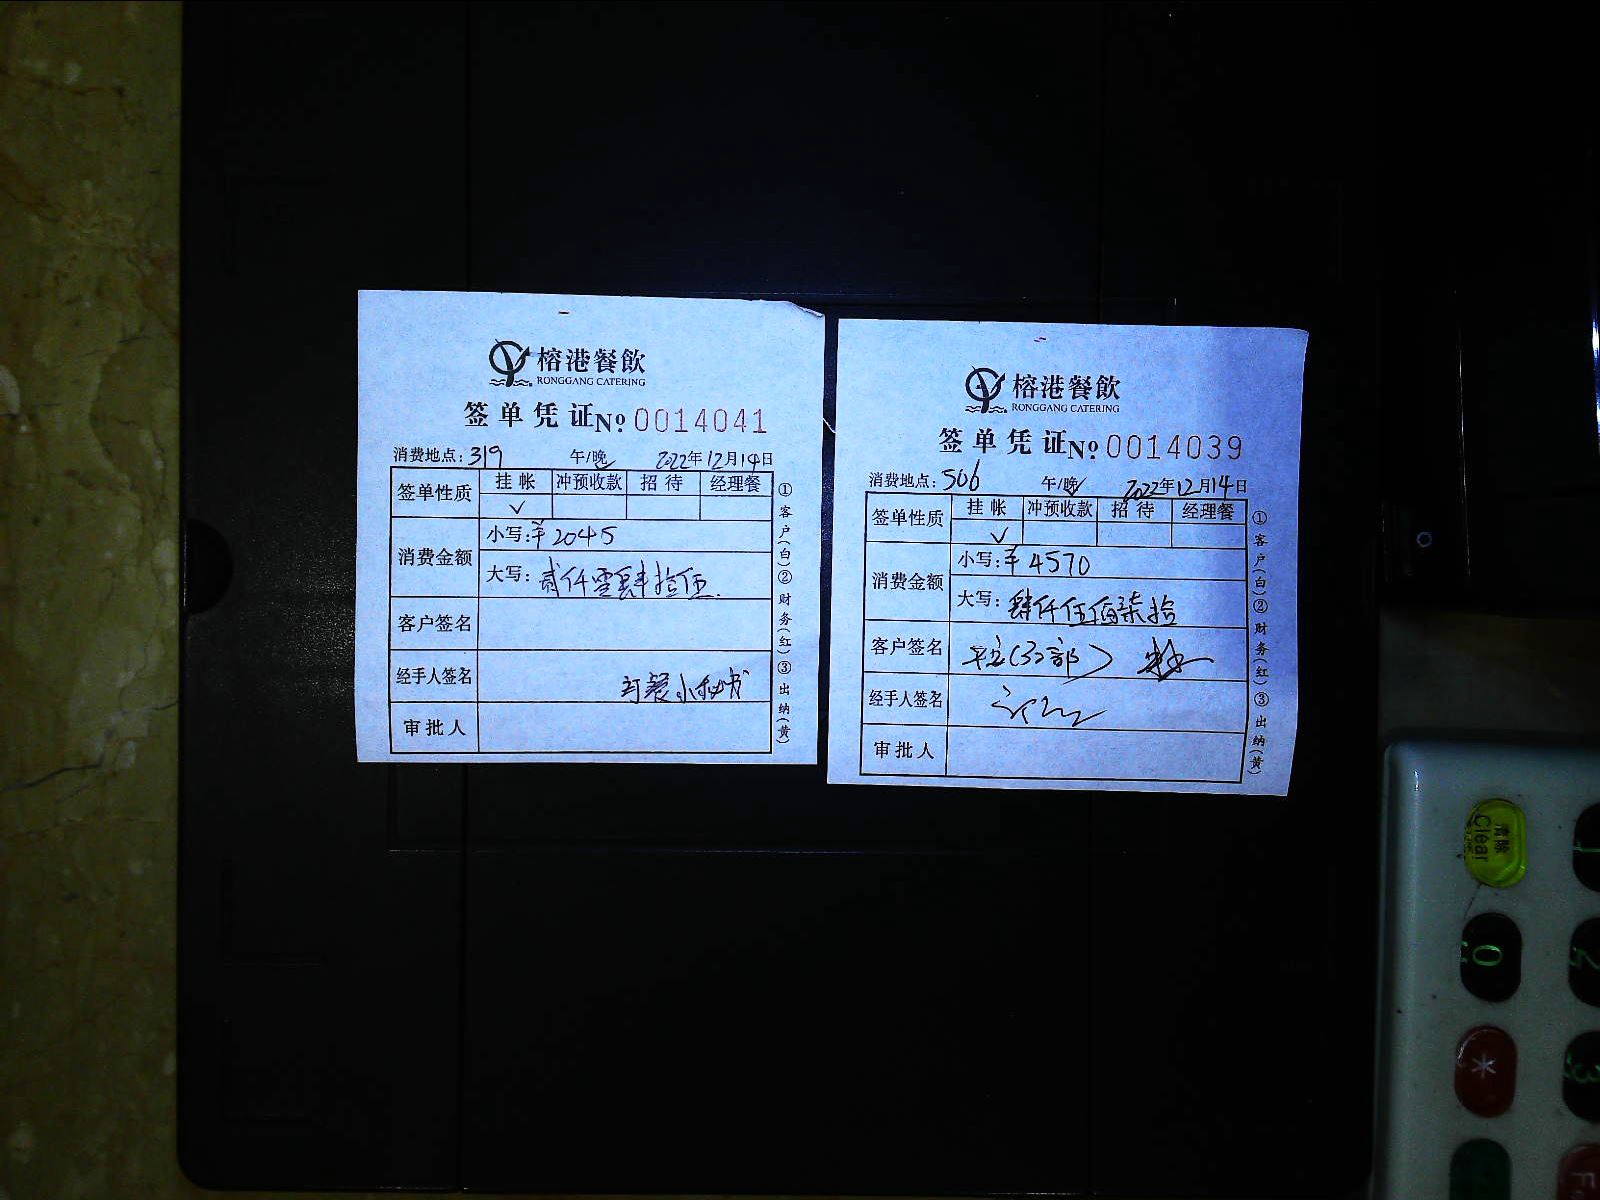 榕港餐飲
RONGGANG CATERING
签单凭证No 0014041
消费地点: 319 午/晚 2022年12月14日
签单性质 挂帐 冲预收款 招待 经理餐
✓
消费金额
小写: ¥2045
大写: 贰仟零肆拾伍
客户签名
经手人签名 订餐小秘书
审批人
①客户(白)②财务(红)③出纳(黄)
榕港餐飲
RONGGANG CATERING
签单凭证No 0014039
消费地点: 506 午/晚 2022年12月14日
签单性质 挂帐 冲预收款 招待 经理餐
✓
消费金额
小写: ¥4570
大写: 肆仟伍佰柒拾
客户签名
经手人签名
审批人
①客户(白)②财务(红)③出纳(黄)
清除
Clear
0
2
*
3